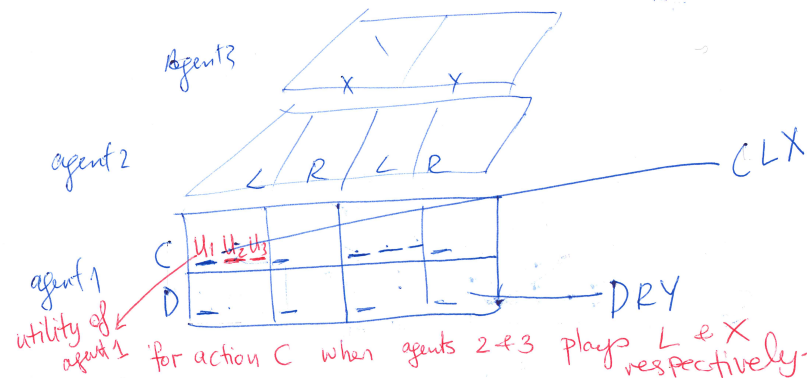 Agent3
X Y
agent2 L R L R
CLX
C u1 u2 u3
agent1
D
DRY
utility of
agent1 for action C when agents 2 & 3 plays L & X
respectively.